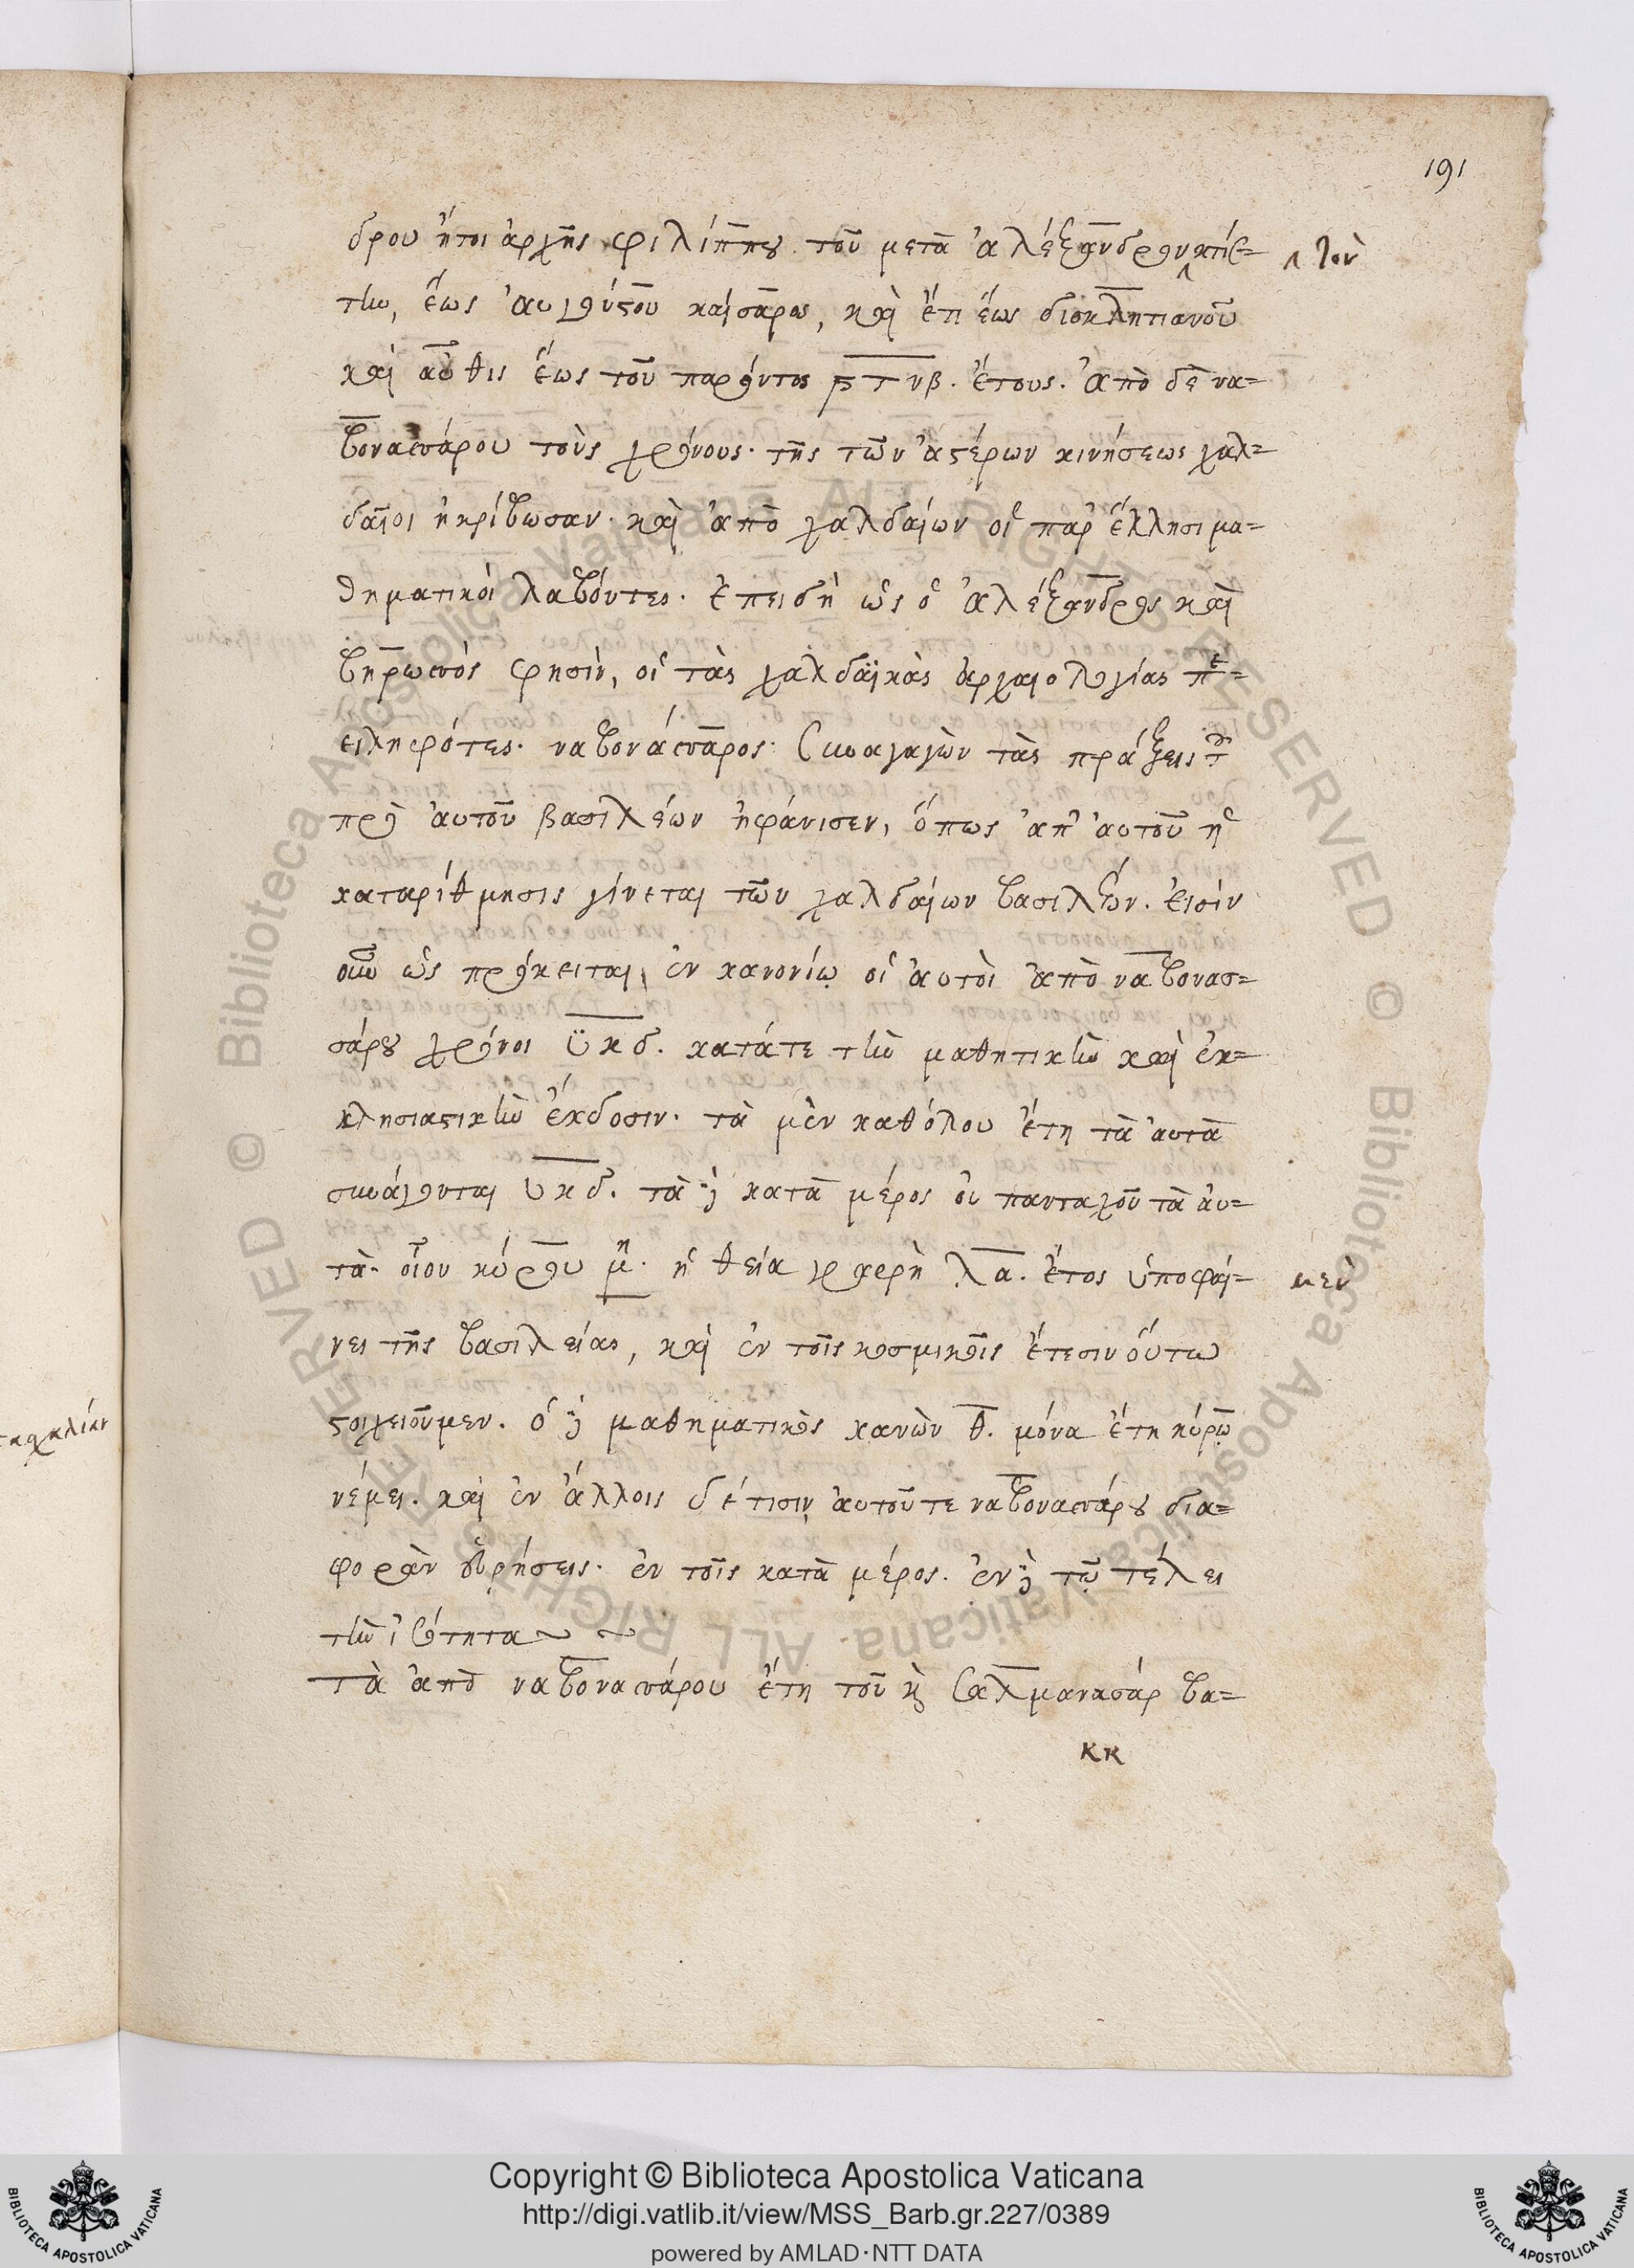 191
δρου ἤτοι ἀρχῆς φιλίππου τοῦ μετὰ ἀλέξανδρον κτίσ-
τὸν
την, ἕως ἀυγούστου καίσαρος, καὶ ἔτι ἕως διοκλητιανοῦ
καὶ αὖθις ἕως τοῦ παρόντος ϛτνβ. ἔτους. ἀπὸ δὲ να-
βονασσάρου τοὺς χρόνους. τῆς τῶν ἀστέρων κινήσεως χαλ-
δαῖοι ἠκρίβωσαν. καὶ ἀπὸ χαλδαίων οἱ παρ' ἕλλησι μα-
θηματικοὶ λαβόντες. ἐπειδὴ ὡς ὁ ἀλέξανδρος καὶ
βηρωσσός φησὶν, οἱ τὰς χαλδαϊκὰς ἀρχαιολογίας πε-
ειληφότες. ναβονάσσαρος συναγαγὼν τὰς πράξεις τῶν
πρὸ ἀυτοῦ βασιλέων ἠφάνισεν, ὅπως ἀπ' ἀυτοῦ ἡ
καταρίθμησις γίνεται τῶν χαλδαίων βασιλέων. ἐισὶν
οὖν ὡς πρόκειται, ἐν κανονίῳ οἱ ἀυτοὶ ἀπὸ ναβονασ-
σάρου χρόνοι ϋκδ. κατάτε τὴν μαθητικὴν καὶ ἐκ-
κλησιαστικὴν ἔκδοσιν. τὰ μὲν καθόλου ἔτη τὰ ἀυτὰ
συνάγονται υκδ. τὰ δὲ κατὰ μέρος ὀυ πανταχοῦ τὰ ἀυ-
τὰ. οἷον κύρου μὴ. ἡ θεία γραφὴ λα. ἔτος ὑποφαί-
μὲν
νει τῆς βασιλείας, καὶ ἐν τοῖς κοσμικοῖς ἔτεσιν ὅυτω
στοιχειοῦμεν. ὁ δὲ μαθηματικὸς κανὼν θ. μόνα ἔτη κύρῳ
νέμει. καὶ ἐν ἄλλοις δέ τισιν ἀυτοῦτε ναβονασσάρου δια-
φορὰν ἑυρήσεις. ἐν τοῖς κατὰ μέρος. ἐν δὲ τῷ τέλει
τὴν ἰσότητα
Τὰ ἀπὸ ναβονασσάρου ἔτη τοῦ καὶ σαλμανασάρ βα-
κκ
Copyright © Biblioteca Apostolica Vaticana
http://digi.vatlib.it/view/MSS_Barb.gr.227/0389
powered by AMLAD·NTT DATA